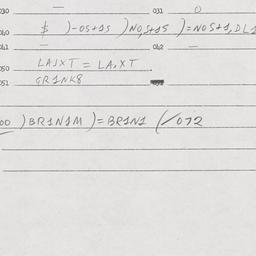 030 — 031 0
040 $ )-OS+1S )NO,S+1S )=NOS+1,DL1
041 — 042 —
050 LAJXT = LA,XT
051 GR1NK8
00 )BR1N1M)=BR1N1 (/072